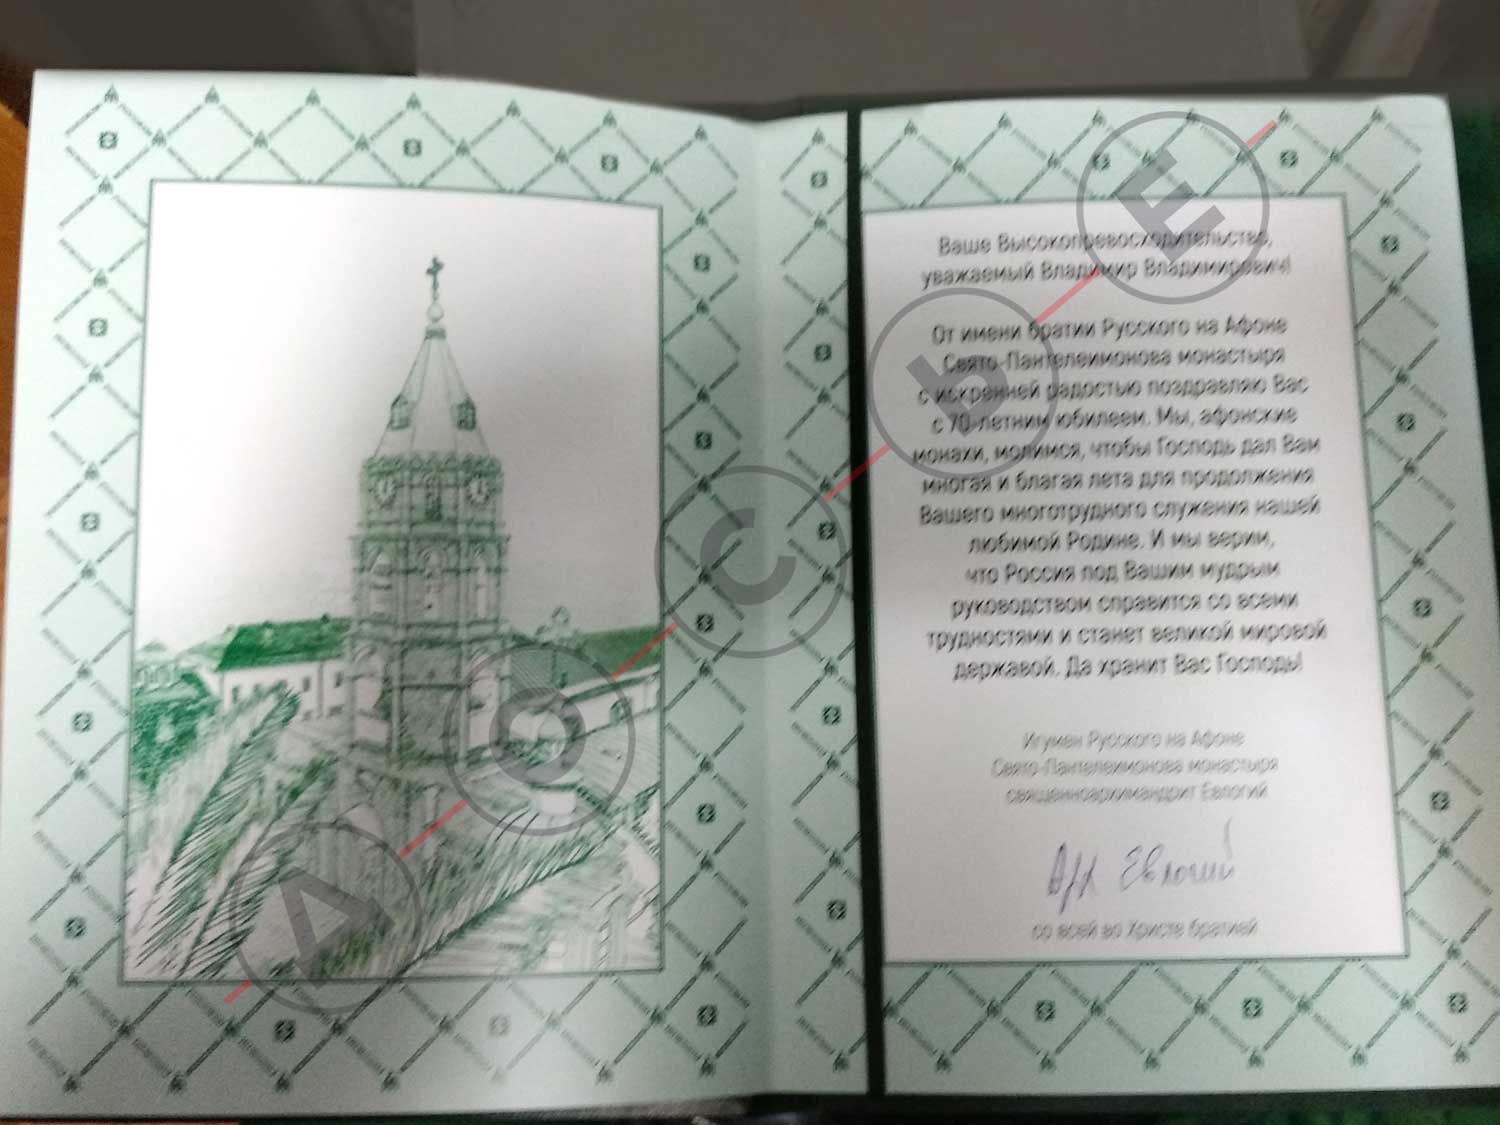 Ваше Высокопревосходительство,
уважаемый Владимир Владимирович!
От имени братии Русского на Афоне
Свято-Пантелеимонова монастыря
с искренней радостью поздравляю Вас
с 70-летним юбилеем. Мы, афонские
монахи, молимся, чтобы Господь дал Вам
многая и благая лета для продолжения
Вашего многотрудного служения нашей
любимой Родине. И мы верим,
что Россия под Вашим мудрым
руководством справится со всеми
трудностями и станет великой мировой
державой. Да хранит Вас Господь!
Игумен Русского на Афоне
Свято-Пантелеимонова монастыря
священноархимандрит Евлогий
Арх Евлогий
со всей во Христе братией